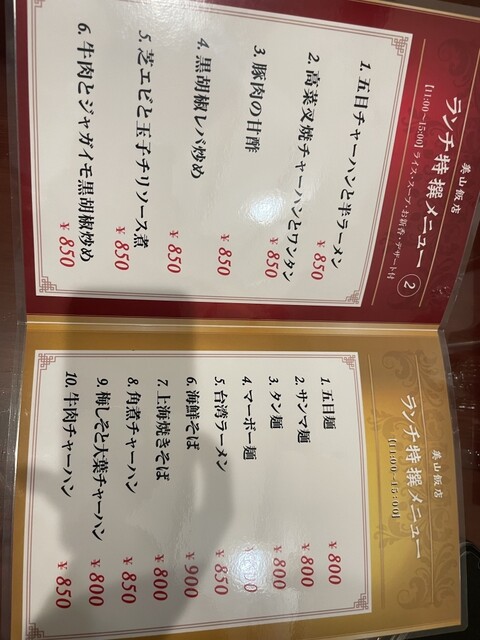 美山飯店
ランチ特撰メニュー ②
【11:00～15:00】ライス・スープ・お新香・デザート付
1. 五目チャーハンと半ラーメン ￥850
2. 高菜叉焼チャーハンとワンタン ￥850
3. 豚肉の甘酢 ￥850
4. 黒胡椒レバ炒め ￥850
5. 芝エビと玉子チリソース煮 ￥850
6. 牛肉とジャガイモ黒胡椒炒め ￥850
美山飯店
ランチ特撰メニュー
【11:00～15:00】
1. 五目麺 ￥800
2. サンマ麺 ￥800
3. タン麺 ￥800
4. マーボー麺
5. 台湾ラーメン ￥850
6. 海鮮そば ￥900
7. 上海焼きそば ￥800
8. 角煮チャーハン ￥850
9. 梅しそと大葉チャーハン ￥800
10. 牛肉チャーハン ￥850